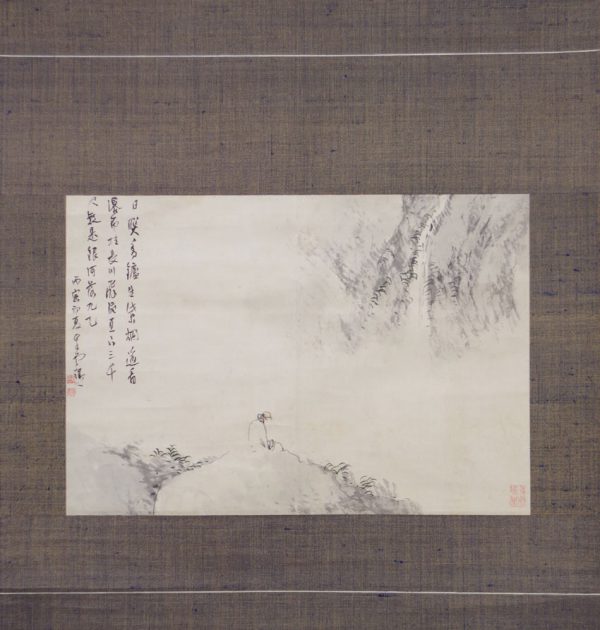 日照香鑪生紫烟遥看
瀑布挂長川飛流直下三千
尺疑是銀河落九天
丙寅初夏